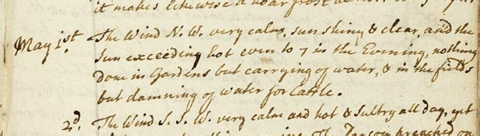 it makes likewise a hoar frost
May 1st. The Wind N. W. very calm, sun shiny & clear, and the
Sun exceeding hot even to 7 in the Evening, nothing
Done in Gardens but carrying of water, & in the fields
but damning of water for Cattle.
2d. The Wind S. S. W. very calm and hot & Sultry all day, yet
The Parson preached on